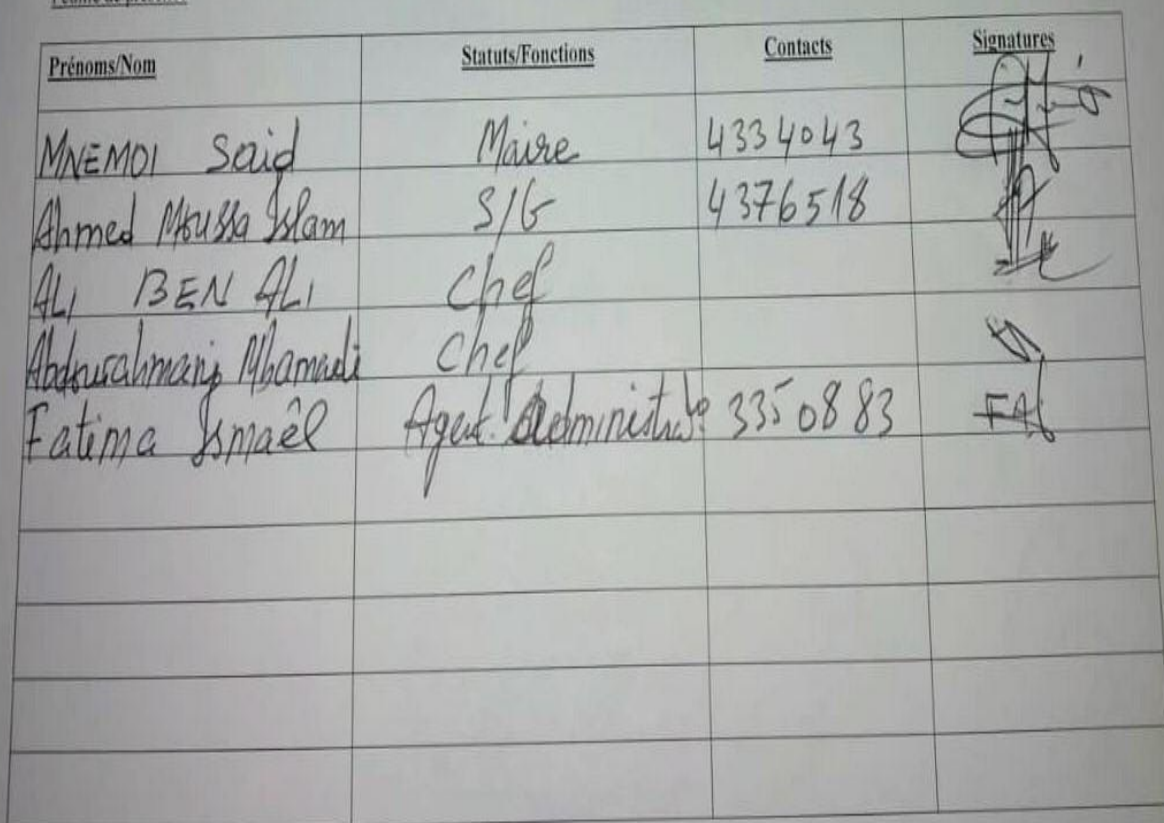 Prénoms/Nom Statuts/Fonctions Contacts Signatures
MNEMOI Said Maire 4334043
Ahmed Moussa Islam S/G 4376518
ALI BEN ALI Chef
Abdourahmani Mhamadi Chef
Fatima Ismaêl Agent 3350883